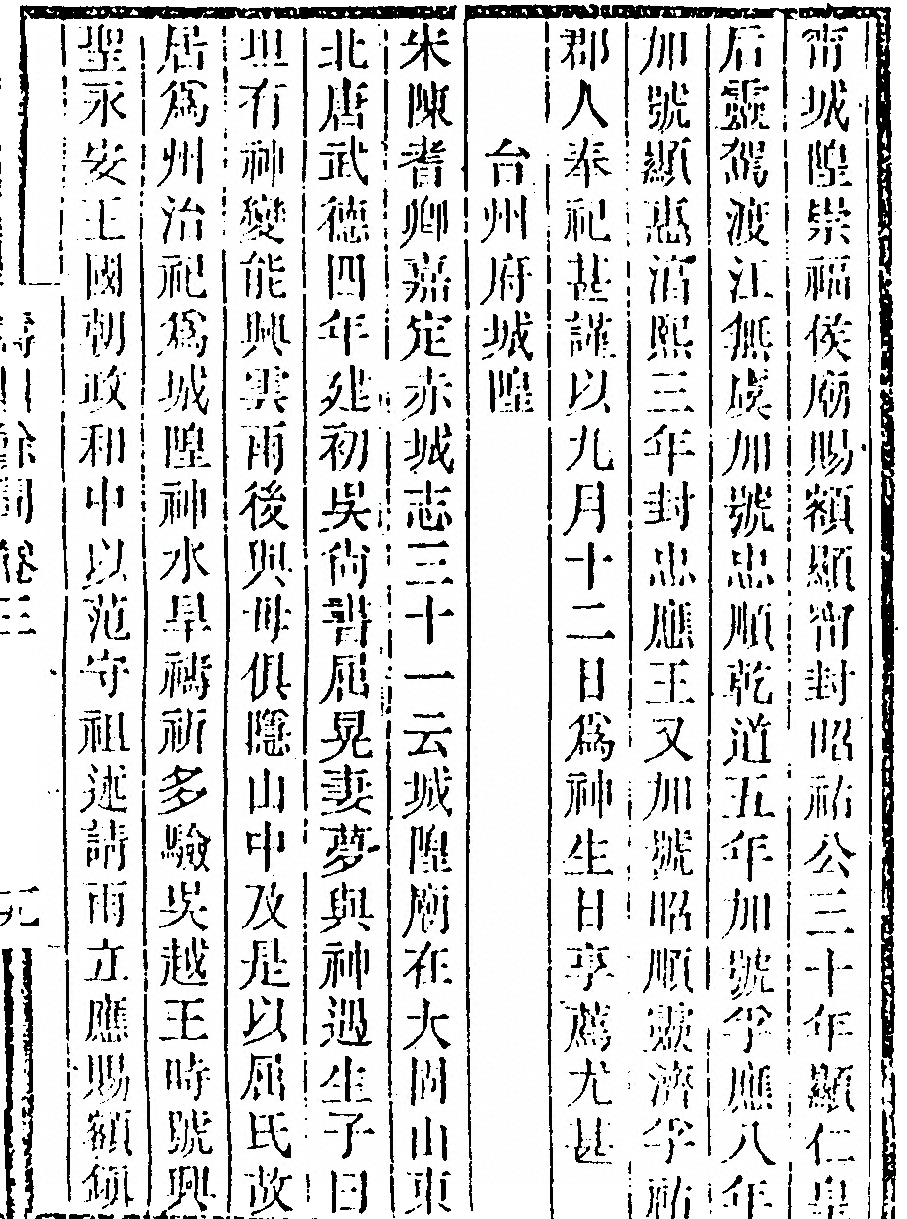 甯城隍崇福侯廟賜額顯甯封昭祐公三十年顯仁皇
后靈駕渡江無虞加號忠順乾道五年加號孚應八年
加號顯惠淳熙三年封忠應王又加號昭順靈濟孚祐
郡人奉祀甚謹以九月十二日爲神生日享薦尤甚
台州府城隍
宋陳耆卿嘉定赤城志三十一云城隍廟在大固山東
北唐武德四年建初吳尚書屈晃妻夢與神遇生子曰
坦有神變能興雲雨後與母俱隱山中及是以屈氏故
居爲州治祀爲城隍神水旱禱祈多驗吳越王時號興
聖永安王國朝政和中以范守祖述請雨立應賜額鎮
餘聞卷三